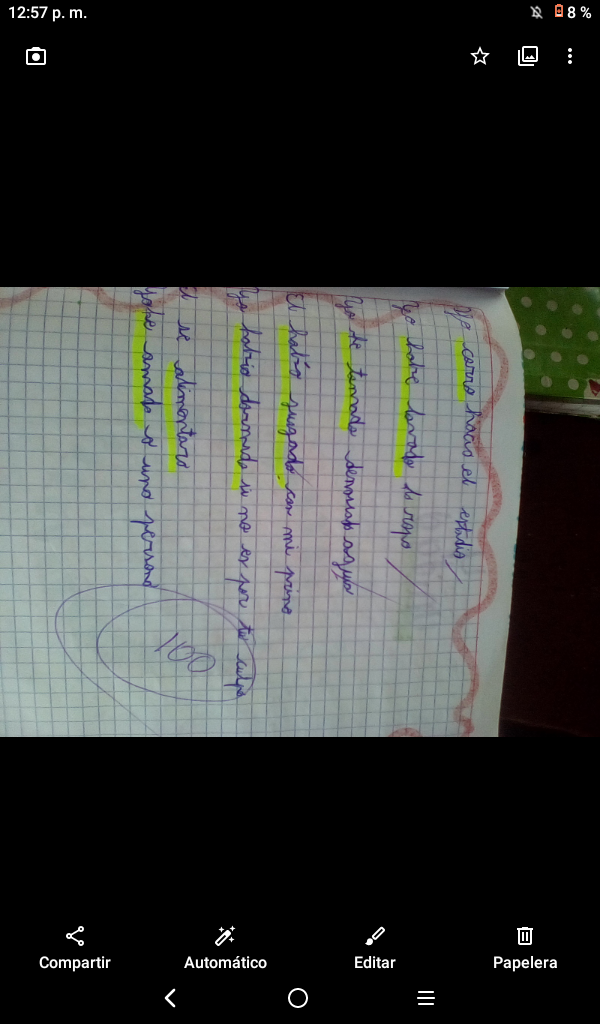 12:57 p. m.
8 %
Yo corro hacia el estadio
Yo habre lavado la ropa
Yo he tomado demasiada agua
El había jugado con mi primo
Yo habria dormido si no es por tu culpa
El se alimentara
amado a una persona
100
Compartir
Automático
Editar
Papelera